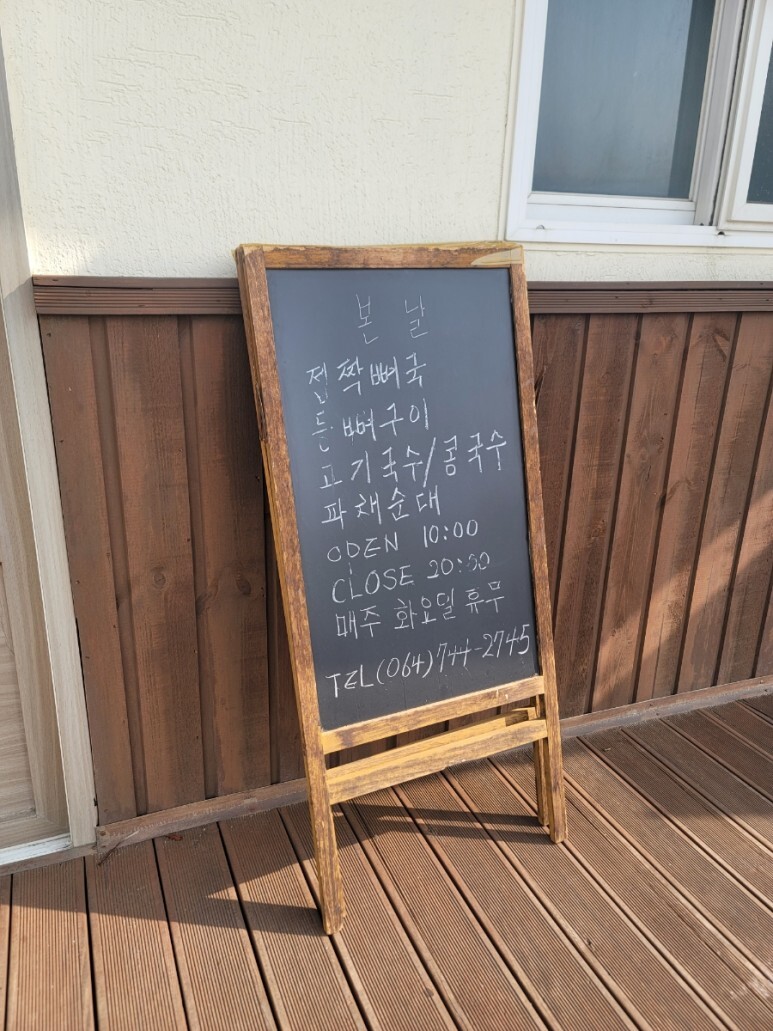 본 날
접짝뼈국
등뼈구이
고기국수/콩국수
파채순대
OPEN 10:00
CLOSE 20:00
매주 화요일 휴무
TEL(064)744-2745